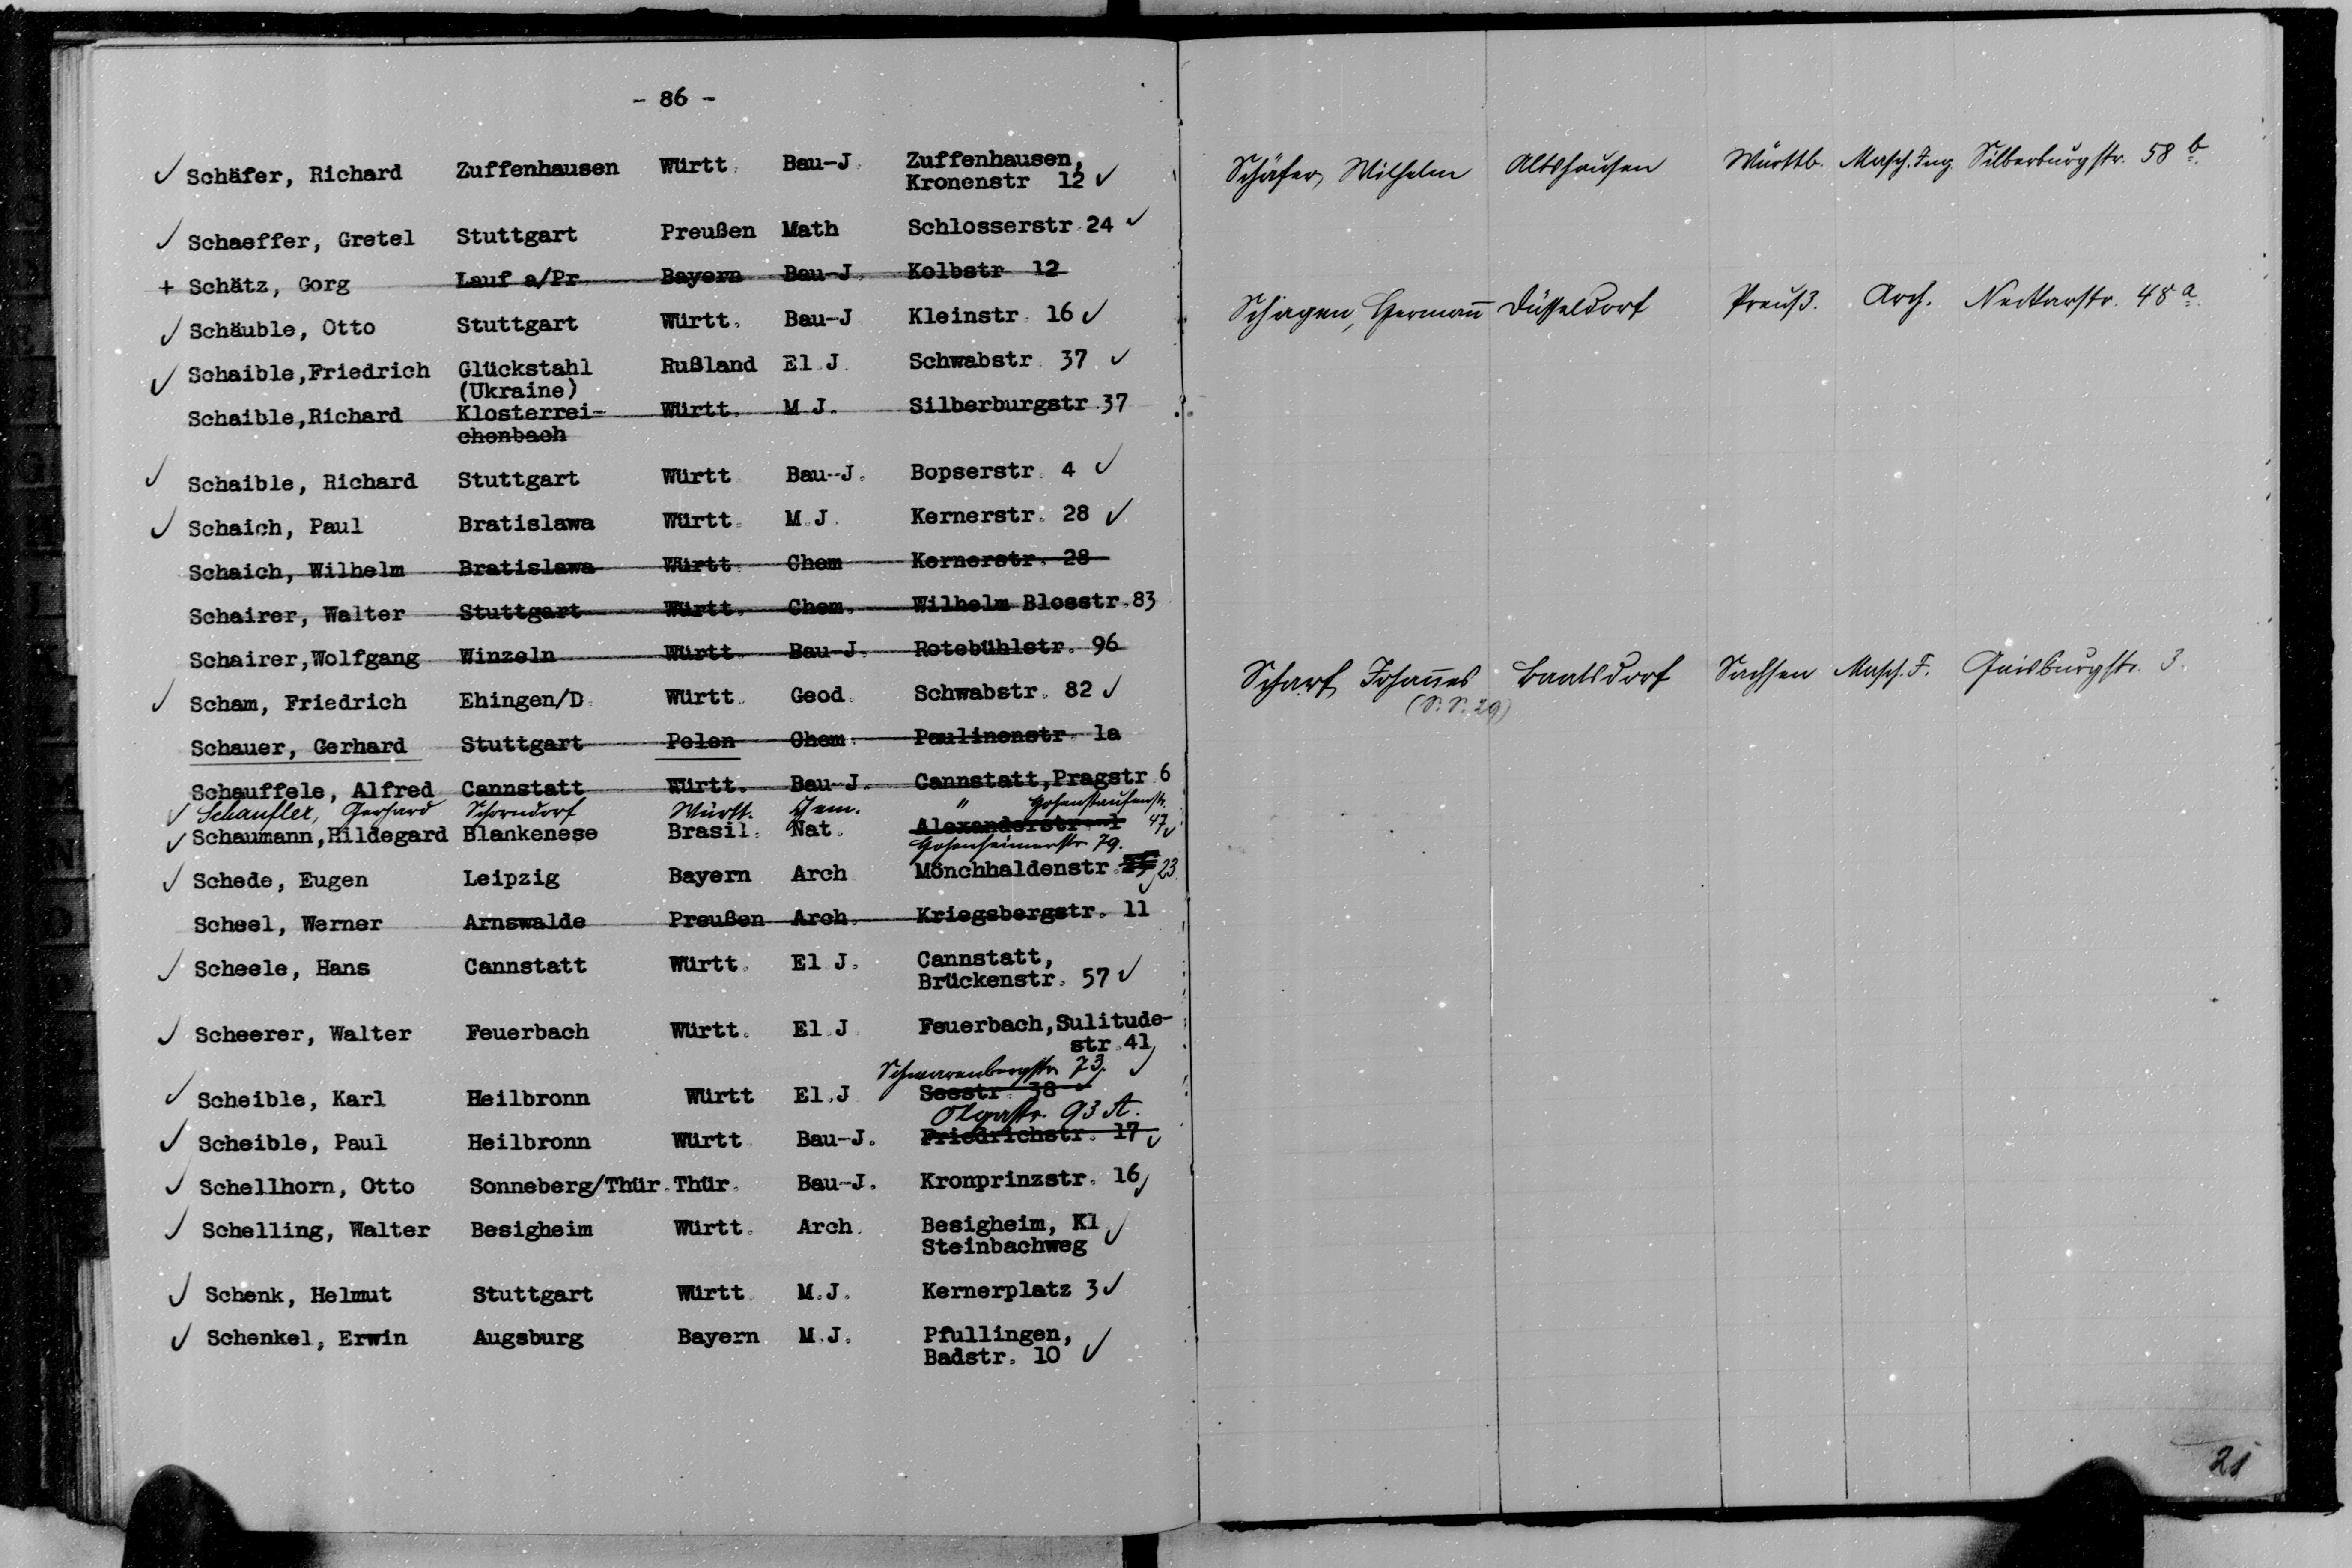 - 86 -
✓ Schäfer, Richard Zuffenhausen Württ. Bau-J. Zuffenhausen,
Kronenstr 12 ✓
✓ Schaeffer, Gretel Stuttgart Preußen Math Schlosserstr. 24 ✓
+ Schätz, Gorg Lauf a/Pr Bayern Bau-J. Kolbstr 12
✓ Schäuble, Otto Stuttgart Württ. Bau-J Kleinstr. 16 ✓
✓ Schaible,Friedrich Glückstahl Rußland El.J. Schwabstr. 37 ✓
(Ukraine)
Schaible,Richard Klosterrei- Württ. M.J. Silberburgstr.37
chenbach
✓ Schaible, Richard Stuttgart Württ Bau-J. Bopserstr. 4 ✓
✓ Schaich, Paul Bratislawa Württ. M.J. Kernerstr. 28 ✓
Schaich, Wilhelm Bratislawa Württ. Chem Kernerstr. 28
Schairer, Walter Stuttgart Württ. Chem. Wilhelm Blosstr.83
Schairer,Wolfgang Winzeln Württ. Bau-J. Rotebühlstr. 96
✓ Scham, Friedrich Ehingen/D. Württ. Geod. Schwabstr. 82 ✓
Schauer, Gerhard Stuttgart Polen Chem. Paulinenstr. 1a
Schauffele, Alfred Cannstatt Württ. Bau-J. Cannstatt,Pragstr 6
✓ Schaufler, Gerhard Schorndorf Württ. Chem. " Hohenstaufenstr.
47 ✓
✓ Schaumann,Hildegard Blankenese Brasil. Nat. Alexanderstr. 1
Hohenheimerstr. 79.
✓ Schede, Eugen Leipzig Bayern Arch Mönchhaldenstr. 23.
Scheel, Werner Arnswalde Preußen Arch. Kriegsbergstr. 11
✓ Scheele, Hans Cannstatt Württ. El.J. Cannstatt,
Brückenstr. 57 ✓
✓ Scheerer, Walter Feuerbach Württ. El.J Feuerbach,Sulitude-
str.41 ✓
Schwarenbergstr. 73.
✓ Scheible, Karl Heilbronn Württ El.J Seestr. 38
Olgastr. 93 A.
✓ Scheible, Paul Heilbronn Württ Bau-J. Friedrichstr. 17 ✓
✓ Schellhorn, Otto Sonneberg/Thür.Thür. Bau-J. Kronprinzstr. 16 ✓
✓ Schelling, Walter Besigheim Württ. Arch. Besigheim, Kl
Steinbachweg ✓
✓ Schenk, Helmut Stuttgart Württ. M.J. Kernerplatz 3 ✓
✓ Schenkel, Erwin Augsburg Bayern M.J. Pfullingen,
Badstr. 10 ✓
Schäfer, Wilhelm Altshausen Württb. Masch.Ing. Silberburgstr. 58 b.
Schagen, Hermann Düsseldorf Preuß. Arch. Neckarstr. 48 a.
Scharf, Johannes Sachsen Masch. Gaisburgstr. 3.
(S.S. 29)
21